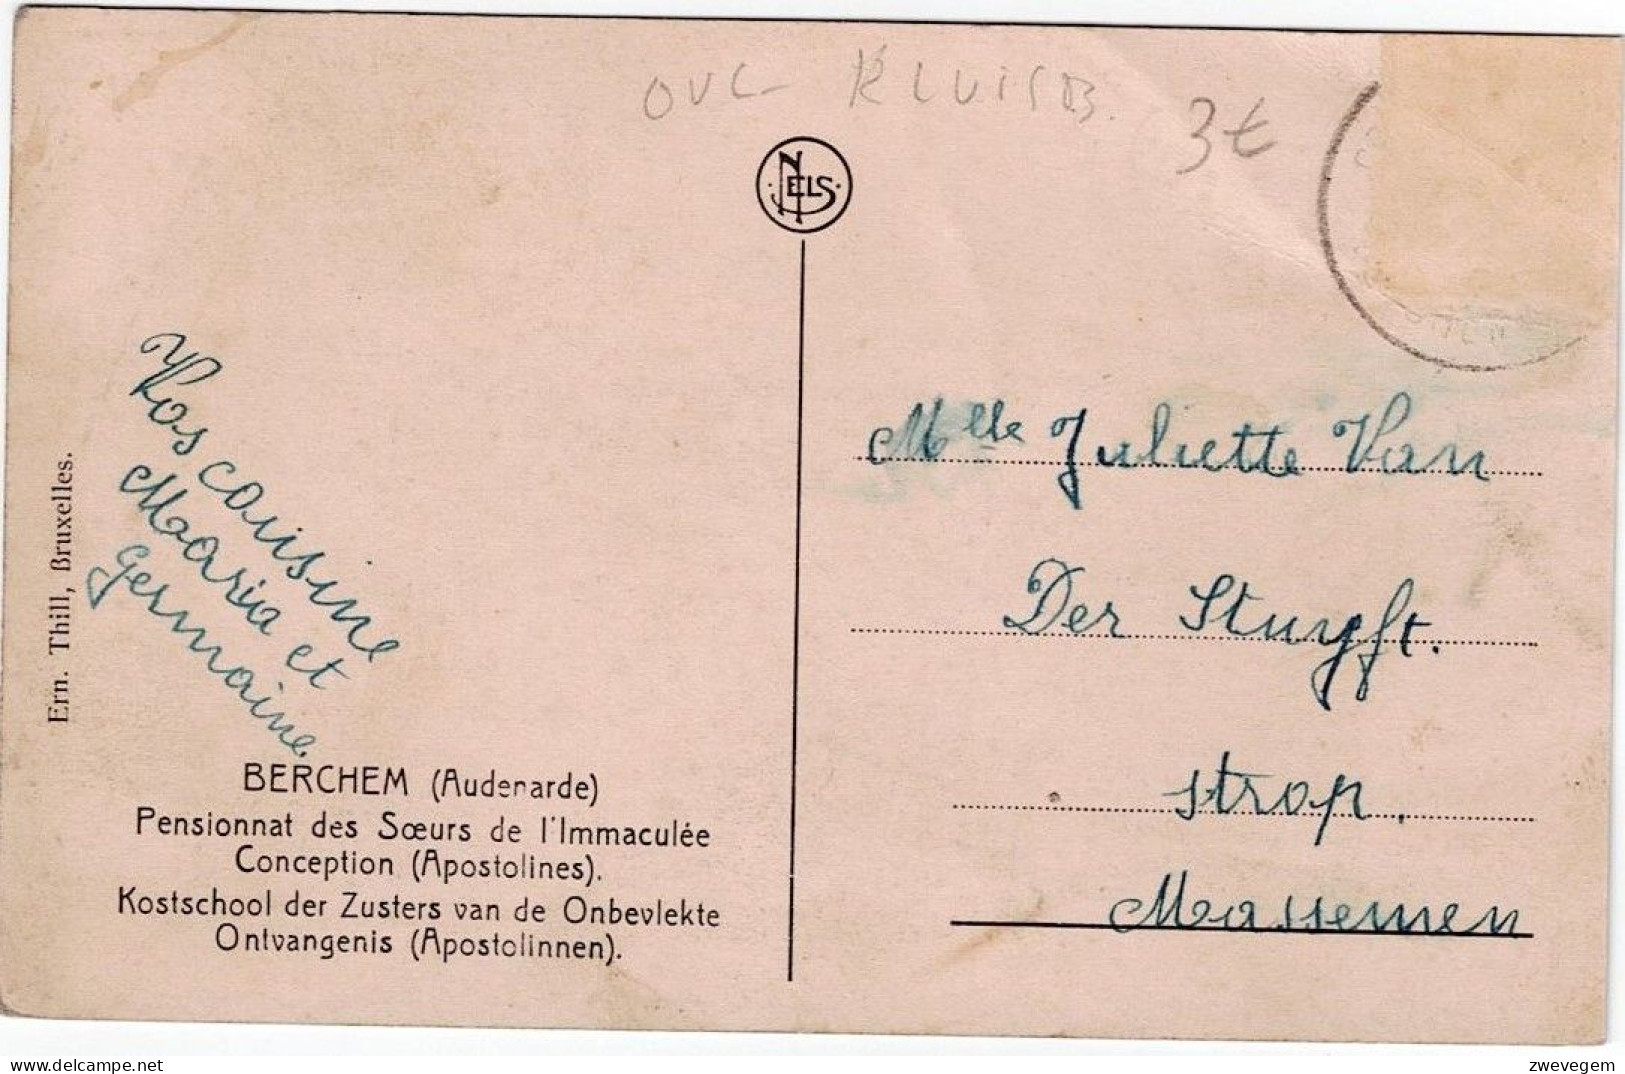 OVL KLUISB.
3€
NELS
Vos cousine
Maria et
Germaine
Ern. Thill, Bruxelles.
BERCHEM (Audenarde)
Pensionnat des Sœurs de l'Immaculée
Conception (Apostolines).
Kostschool der Zusters van de Onbevlekte
Ontvangenis (Apostolinnen).
Mlle Juliette Van
Der Stuyft.
strop.
Massemen
delcampe.net
zwevegem